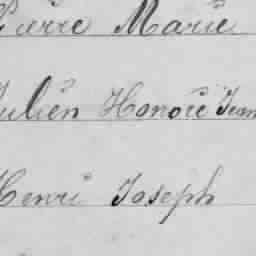 Pierre Marie
Julien Honoré Jean
Henri Joseph